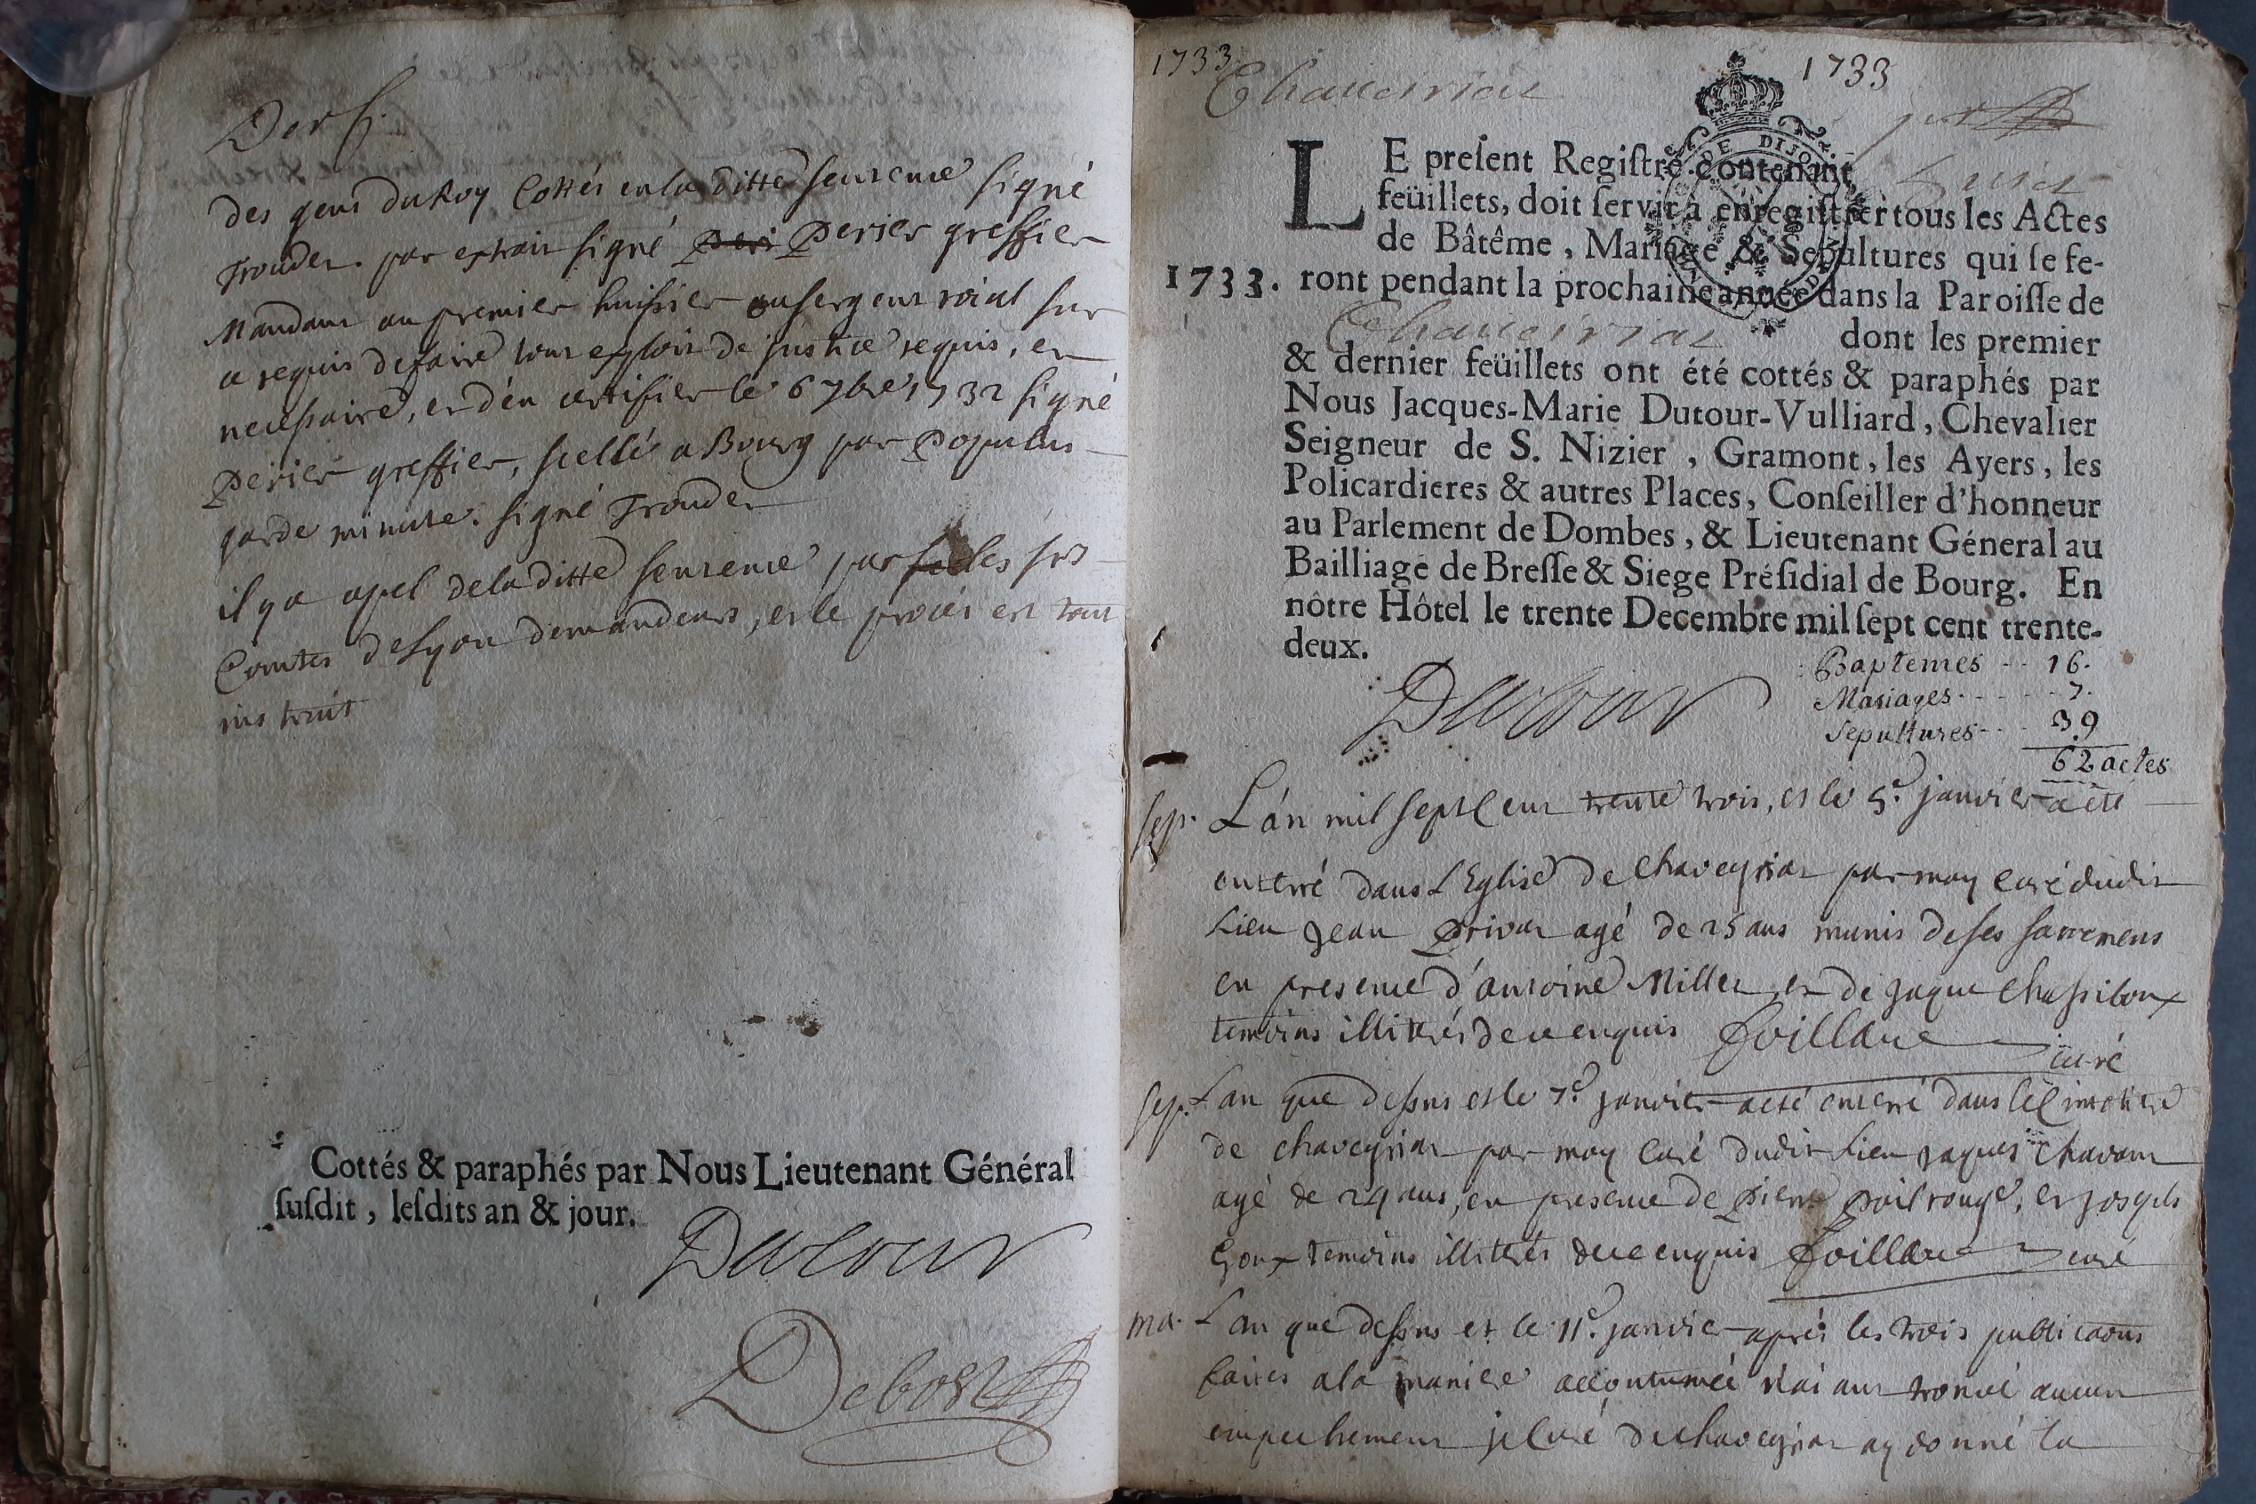 des gens du Roy Cottés en la ditte sentence signé
Trouder. par extrait signé Peri Perier greffier
Mandant au premier huissier ou sergent roial sur
ce requis de faire tout exploit de justice requis, et
necessaire, et d'en certifier le 6 7bre 1732 signé
Perier greffier, scellé a Bourg par Populus
garde minute. signé Trouder
il y a apel de la ditte sentence par les srs
Comtes de Lyon demandeurs, et le procés est tout
instruit
Cottés & paraphés par Nous Lieutenant Général
ſuſdit, leſdits an & jour.
Dutour
Debost
1733 1733
Chaveiriat
LE preſent Regiſtre contenant
feüillets, doit ſervir à enregiſtrer tous les Actes
de Bâtême, Mariage & Sepultures qui ſe fe-
1733. ront pendant la prochaine année dans la Paroiſſe de
Chaveiriat dont les premier
& dernier feüillets ont été cottés & paraphés par
Nous Jacques-Marie Dutour-Vulliard, Chevalier
Seigneur de S. Nizier, Gramont, les Ayers, les
Policardieres & autres Places, Conſeiller d'honneur
au Parlement de Dombes, & Lieutenant Géneral au
Bailliage de Breſſe & Siege Préſidial de Bourg. En
nôtre Hôtel le trente Decembre mil ſept cent trente-
deux.
Baptemes -- 16.
Mariages ----- 7.
Sepultures --- 39
62 actes
Dutour
sep. L'an mil sept Cent trente trois, et le 5e. janvier a été
enterré dans L'Eglise de chaveyriat par moy curé dudit
Lieu Jean Privat agé de 25 ans munis de ses sacremens
en presence d'antoine Millet, et de jaque Chassiboux
temoins illittrés de ce enquis Foillare curé
sep. L'an que dessus et le 7e. janvier a eté enterré dans le Cimetiere
de chaveyriat par moy Curé dudit Lieu jaques Chavant
agé de 24 ans, en presence de Pierre Poil rouge, et josephs
Goux temoins illittrés de ce enquis Foillare curé
ma. L'an que dessus et le 11e. janvier aprés les trois publicaons
faites a la maniere accoutumée n'aiant trouvé aucun
empechement je Curé de chaveyriat ay donné la